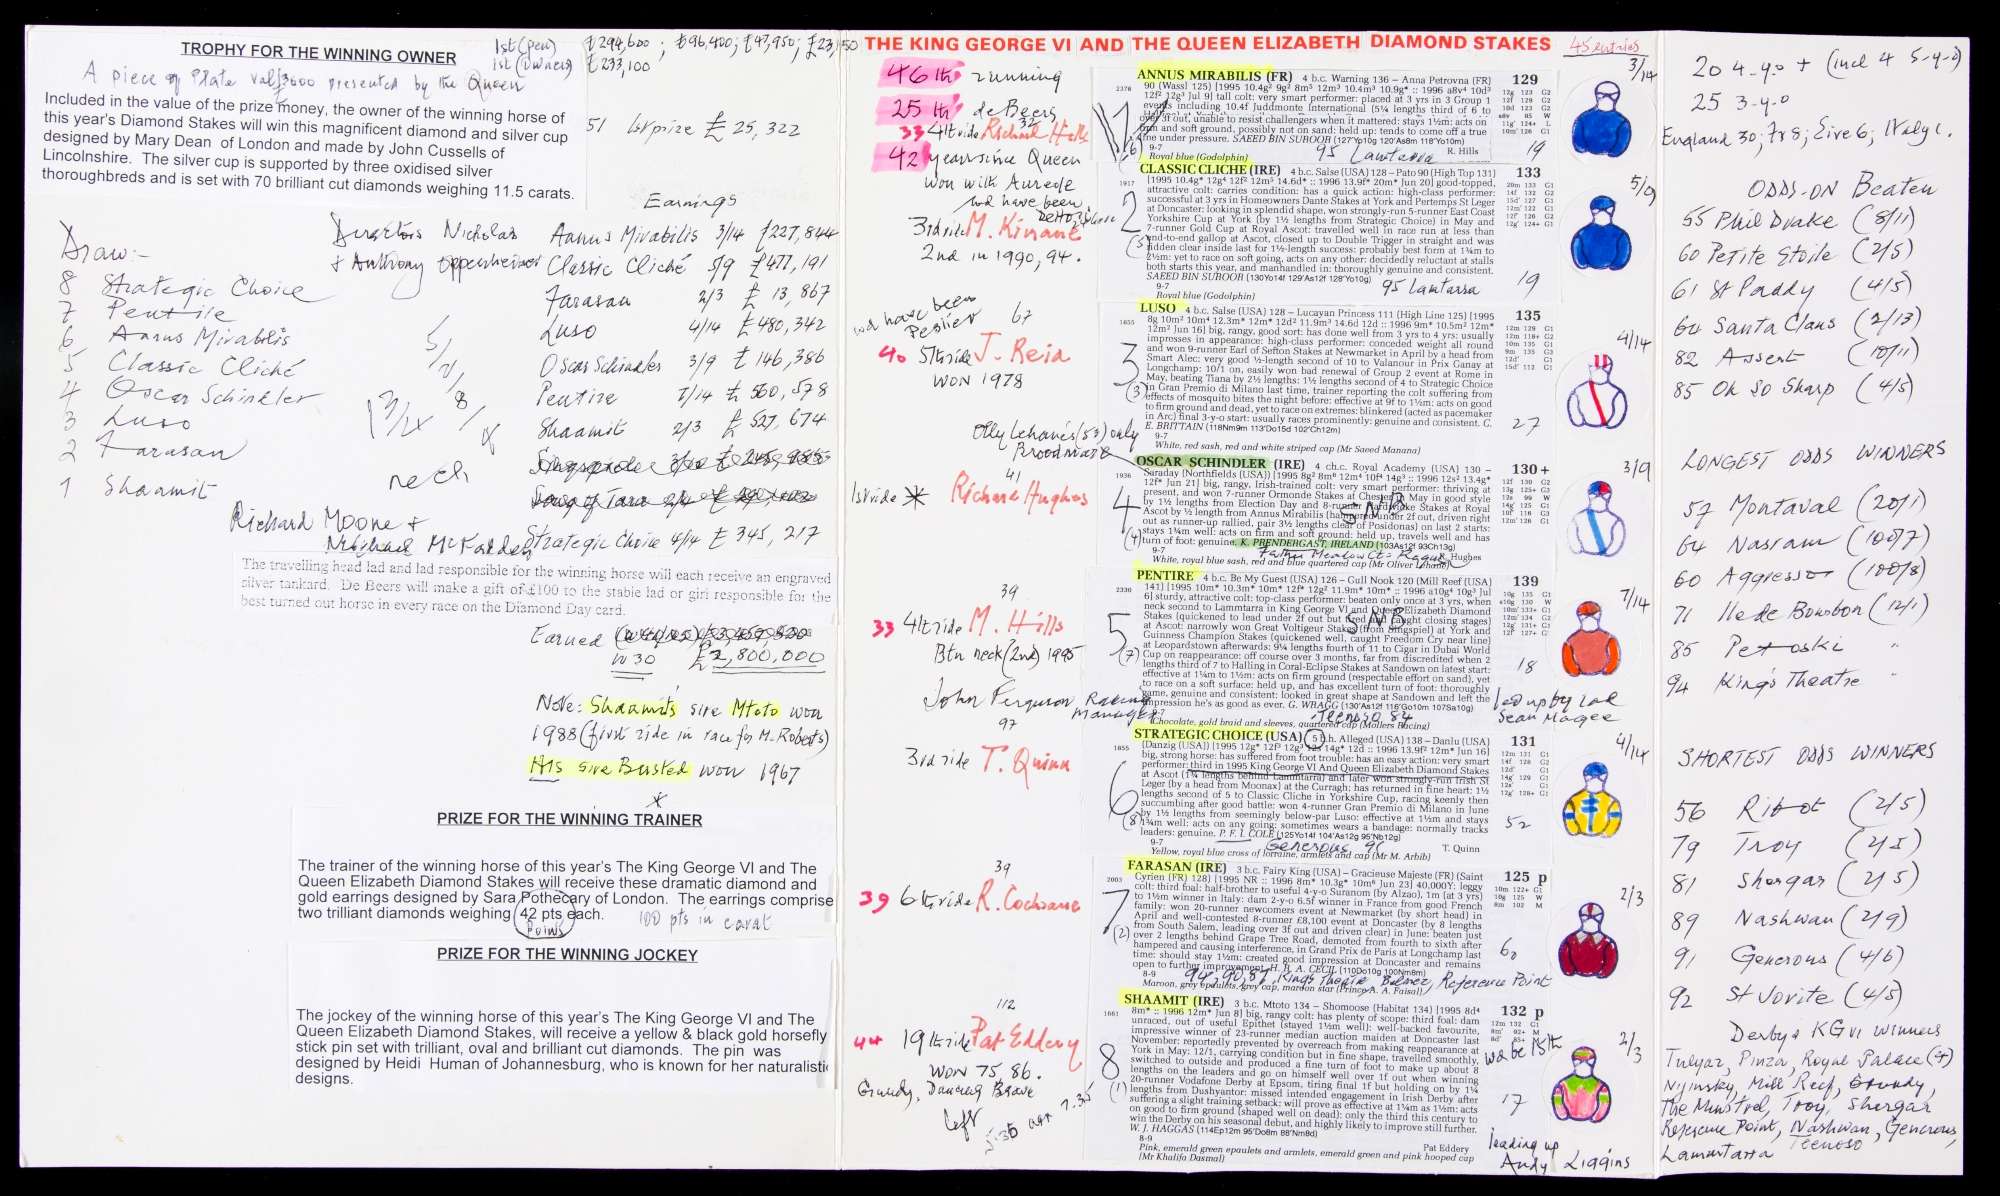 TROPHY FOR THE WINNING OWNER
1st (pen) £294,600 ; £96,400; £47,950; £23,150
1st (Owners) £233,100
A piece of Plate val/3000 presented by the Queen
Included in the value of the prize money, the owner of the winning horse of
this year's Diamond Stakes will win this magnificent diamond and silver cup
designed by Mary Dean of London and made by John Cussells of
Lincolnshire. The silver cup is supported by three oxidised silver
thoroughbreds and is set with 70 brilliant cut diamonds weighing 11.5 carats.
51 1st prize £ 25,322
Earnings
Directors Nicholas
+ Anthony Oppenheimer
Draw:-
8 Strategic Choice
7 Pentire
6 Annus Mirabilis
5 Classic Cliché
4 Oscar Schindler
3 Luso
2 Farasan
1 Shaamit
neck
Annus Mirabilis 3/14 £227,844
Classic Cliché 5/9 £477,191
Farasan 2/3 £ 13,867
Luso 4/14 £480,342
Oscar Schindler 3/9 £ 146,386
Pentire 7/14 £ 560,578
Shaamit 2/3 £ 527,674
Strategic Choice 4/14 £ 345,217
Richard Moore +
Michael McFadden
The travelling head lad and lad responsible for the winning horse will each receive an engraved
silver tankard. De Beers will make a gift of £100 to the stable lad or girl responsible for the
best turned out horse in every race on the Diamond Day card.
Earned
W 30 £2,800,000
Note: Shaamit's sire Mtoto won
1988 (first ride in race for M. Roberts)
His sire Busted won 1967
PRIZE FOR THE WINNING TRAINER
The trainer of the winning horse of this year's The King George VI and The
Queen Elizabeth Diamond Stakes will receive these dramatic diamond and
gold earrings designed by Sara Pothecary of London. The earrings comprise
two trilliant diamonds weighing 42 pts each.
Points 100 pts in carat
PRIZE FOR THE WINNING JOCKEY
The jockey of the winning horse of this year's The King George VI and The
Queen Elizabeth Diamond Stakes, will receive a yellow & black gold horsefly
stick pin set with trilliant, oval and brilliant cut diamonds. The pin was
designed by Heidi Human of Johannesburg, who is known for her naturalistic
designs.
THE KING GEORGE VI AND THE QUEEN ELIZABETH DIAMOND STAKES
45 entries
46th running
25th de Beers
32
33 4th ride Richard Hills
42 years since Queen
won with Aureole
wd have been
3rd ride M. Kinane
2nd in 1990, 94.
wd have been
Peslier 67
40 5th ride J. Reid
WON 1978
Olly Lehane's (53) only
Broodmare
41
1st ride * Richard Hughes
39
33 4th ride M. Hills
Btn neck (2nd) 1995
John Ferguson Racing
Manager
97
3rd ride T. Quinn
39
39 6th ride R. Cochrane
112
44 19th ride Pat Eddery
WON 75, 86.
Grundy, Dancing Brave
left 5.35
ANNUS MIRABILIS (FR) 4 b.c. Warning 136 – Anna Petrovna (FR) 129
90 (Wassl 125) [1995 10.4g² 9g³ 8m⁵ 12m³ 10.4m³ 10.9g* :: 1996 a8v⁴ 10d³
12f² 12g³ Jul 9] tall colt: very smart performer: placed at 3 yrs in 3 Group 1
events including 10.4f Juddmonte International (5¾ lengths third of 6 to
over 1f out, unable to resist challengers when it mattered: stays 1½m: acts on
firm and soft ground, possibly not on sand: held up: tends to come off a true
line under pressure. SAEED BIN SUROOR (127Yp10g 120'As8m 118'Yo10m)
9-7 95 Lamtarra R. Hills
Royal blue (Godolphin) 19
3/14
CLASSIC CLICHE (IRE) 4 b.c. Salse (USA) 128 – Pato 90 (High Top 131) 133
[1995 10.4g* 12g⁴ 12f² 12m⁵ 14.6d* :: 1996 13.9f* 20m* Jun 20] good-topped,
attractive colt: carries condition: has a quick action: high-class performer:
successful at 3 yrs in Homeowners Dante Stakes at York and Pertemps St Leger
at Doncaster: looking in splendid shape, won strongly-run 5-runner East Coast
Yorkshire Cup at York (by 1½ lengths from Strategic Choice) in May and
7-runner Gold Cup at Royal Ascot: travelled well in race run at less than
end-to-end gallop at Ascot, closed up to Double Trigger in straight and was
ridden clear inside last for 1½-length success: probably best form at 1¾m to
2½m: yet to race on soft going, acts on any other: decidedly reluctant at stalls
both starts this year, and manhandled in: thoroughly genuine and consistent.
SAEED BIN SUROOR (130Yo14f 129'As12f 128'Yo10g)
9-7 95 Lamtarra 19
Royal blue (Godolphin)
5/9
LUSO 4 b.c. Salse (USA) 128 – Lucayan Princess 111 (High Line 125) [1995 135
8g 10m² 10m⁴ 12.3m* 12m* 12d² 11.9m³ 14.6d 12d :: 1996 9m* 10.5m² 12m*
12m² Jun 16] big, rangy, good sort: has done well from 3 yrs to 4 yrs: usually
impresses in appearance: high-class performer: conceded weight all round
and won 9-runner Earl of Sefton Stakes at Newmarket in April by a head from
Smart Alec: very good ½-length second of 10 to Valanour in Prix Ganay at
Longchamp: 10/1 on, easily won bad renewal of Group 2 event at Rome in
May, beating Tiana by 2½ lengths: 1½ lengths second of 4 to Strategic Choice
in Gran Premio di Milano last time, trainer reporting the colt suffering from
effects of mosquito bites the night before: effective at 9f to 1½m: acts on good
to firm ground and dead, yet to race on extremes: blinkered (acted as pacemaker
in Arc) final 3-y-o start: usually races prominently: genuine and consistent. C.
E. BRITTAIN (118Nm9m 113'Do15d 102'Ch12m)
9-7 27
White, red sash, red and white striped cap (Mr Saeed Manana)
4/14
OSCAR SCHINDLER (IRE) 4 ch.c. Royal Academy (USA) 130 – 130+
Saraday (Northfields (USA)) [1995 8g² 8m⁶ 12m⁴ 10f⁴ 14g³ :: 1996 12s² 13.4g*
12f* Jun 21] big, rangy, Irish-trained colt: very smart performer: thriving at
present, and won 7-runner Ormonde Stakes at Chester in May in good style
by 1½ lengths from Election Day and 8-runner Hardwicke Stakes at Royal
Ascot by ½ length from Annus Mirabilis (hampered under 2f out, driven right
out as runner-up rallied, pair 3½ lengths clear of Posidonas) on last 2 starts:
stays 1¾m well: acts on firm and soft ground: held up, travels well and has
turn of foot: genuine. K. PRENDERGAST, IRELAND (103As12f 93Ch13g)
SNB
9-7 Father Meadow Ct - Ragusa Hughes
White, royal blue sash, red and blue quartered cap (Mr Oliver Lehane)
3/9
PENTIRE 4 b.c. Be My Guest (USA) 126 – Gull Nook 120 (Mill Reef (USA) 139
141) [1995 10m* 10.3m* 10m* 12f* 12g² 11.9m* 10m* :: 1996 a10g⁴ 10g³ Jul
6] sturdy, attractive colt: top-class performer: beaten only once at 3 yrs, when
neck second to Lammtarra in King George VI and Queen Elizabeth Diamond
Stakes (quickened to lead under 2f out but tired and caught closing stages)
at Ascot: narrowly won Great Voltigeur Stakes (from Singspiel) at York and
Guinness Champion Stakes (quickened well, caught Freedom Cry near line)
at Leopardstown afterwards: 9¼ lengths fourth of 11 to Cigar in Dubai World
Cup on reappearance: off course over 3 months, far from discredited when 2
lengths third of 7 to Halling in Coral-Eclipse Stakes at Sandown on latest start:
effective at 1¼m to 1½m: acts on firm ground (respectable effort on sand), yet
to race on a soft surface: held up, and has excellent turn of foot: thoroughly
game, genuine and consistent: looked in great shape at Sandown and left the
impression he's as good as ever. G. WRAGG (130'As12f 116'Go10m 107Sa10g)
SNB 18
9-7 Teenoso 84
Chocolate, gold braid and sleeves, quartered cap (Mollers Racing)
7/14
led up by lad
Sean Magee
STRATEGIC CHOICE (USA) 5 b.h. Alleged (USA) 138 – Danlu (USA) 131
(Danzig (USA)) [1995 12g* 12f² 12g³ 12s 14g* 12d :: 1996 13.9f² 12m* Jun 16]
big, strong horse: has suffered from foot trouble: has an easy action: very smart
performer: third in 1995 King George VI And Queen Elizabeth Diamond Stakes
at Ascot (1¾ lengths behind Lammtarra) and later won strongly-run Irish St
Leger (by a head from Moonax) at the Curragh: has returned in fine heart: 1½
lengths second of 5 to Classic Cliche in Yorkshire Cup, racing keenly then
succumbing after good battle: won 4-runner Gran Premio di Milano in June
by 1½ lengths from seemingly below-par Luso: effective at 1½m and stays
1¾m well: acts on any going: sometimes wears a bandage: normally tracks
leaders: genuine. P. F. I. COLE (125Yo14f 104'As12g 95'Nb12g)
9-7 Generous 91 T. Quinn 52
Yellow, royal blue cross of lorraine, armlets and cap (Mr M. Arbib)
4/14
FARASAN (IRE) 3 b.c. Fairy King (USA) – Gracieuse Majeste (FR) (Saint 125 p
Cyrien (FR) 128) [1995 NR :: 1996 8m* 10.3g* 10m⁶ Jun 23] 40,000Y: leggy
colt: third foal: half-brother to useful 4-y-o Suranom (by Alzao), 1m (at 3 yrs)
to 1½m winner in Italy: dam 2-y-o 6.5f winner in France from good French
family: won 20-runner newcomers event at Newmarket (by short head) in
April and well-contested 8-runner £8,100 event at Doncaster (by 8 lengths
from South Salem, leading over 3f out and driven clear) in June: beaten just
over 2 lengths behind Grape Tree Road, demoted from fourth to sixth after
hampered and causing interference, in Grand Prix de Paris at Longchamp last
time: should stay 1½m: created good impression at Doncaster and remains
open to further improvement. H. R. A. CECIL (110Do10g 100Nm8m)
8-9 94, 90, 87, Kings Theatre, Belmez, Reference Point 60
Maroon, grey epaulets, grey cap, maroon star (Prince A. A. Faisal)
2/3
SHAAMIT (IRE) 3 b.c. Mtoto 134 – Shomoose (Habitat 134) [1995 8d⁴ 132 p
8m* :: 1996 12m* Jun 8] big, rangy colt: has plenty of scope: third foal: dam
unraced, out of useful Epithet (stayed 1½m well): well-backed favourite,
impressive winner of 23-runner median auction maiden at Doncaster last
November: reportedly prevented by overreach from making reappearance at
York in May: 12/1, carrying condition but in fine shape, travelled smoothly,
switched to outside and produced a fine turn of foot to make up about 8
lengths on the leaders and go on himself well over 1f out when winning
20-runner Vodafone Derby at Epsom, tiring final 1f but holding on by 1¼
lengths from Dushyantor: missed intended engagement in Irish Derby after
suffering a slight training setback: will prove as effective at 1¼m as 1½m: acts
on good to firm ground (shaped well on dead): only the third this century to
win the Derby on his seasonal debut, and highly likely to improve still further.
W. J. HAGGAS (114Ep12m 95'Do8m 88'Nm8d)
8-9 Pat Eddery
Pink, emerald green epaulets and armlets, emerald green and pink hooped cap
(Mr Khalifa Dasmal)
wd be 15th
17
2/3
leading up
Andy Liggins
20 4-y-o + (incl 4 5-y-o)
25 3-y-o
England 30; Fr 8; Eire 6; Italy 1.
ODDS-ON Beaten
55 Phil Drake (8/11)
60 Petite Etoile (2/5)
61 St Paddy (4/5)
64 Santa Claus (2/13)
82 Assert (10/11)
85 Oh So Sharp (4/5)
LONGEST ODDS WINNERS
57 Montaval (20/1)
64 Nasram (100/7)
60 Aggressor (100/8)
71 Ile de Bourbon (12/1)
85 Petoski "
94 King's Theatre "
SHORTEST ODDS WINNERS
56 Ribot (2/5)
79 Troy (2/5)
81 Shergar (2/5)
89 Nashwan (2/9)
91 Generous (4/6)
92 St Jovite (4/5)
Derby + KGVI winners
Tulyar, Pinza, Royal Palace (+)
Nijinsky, Mill Reef, Grundy,
The Minstrel, Troy, Shergar
Reference Point, Nashwan, Generous,
Teenoso
Lammtarra